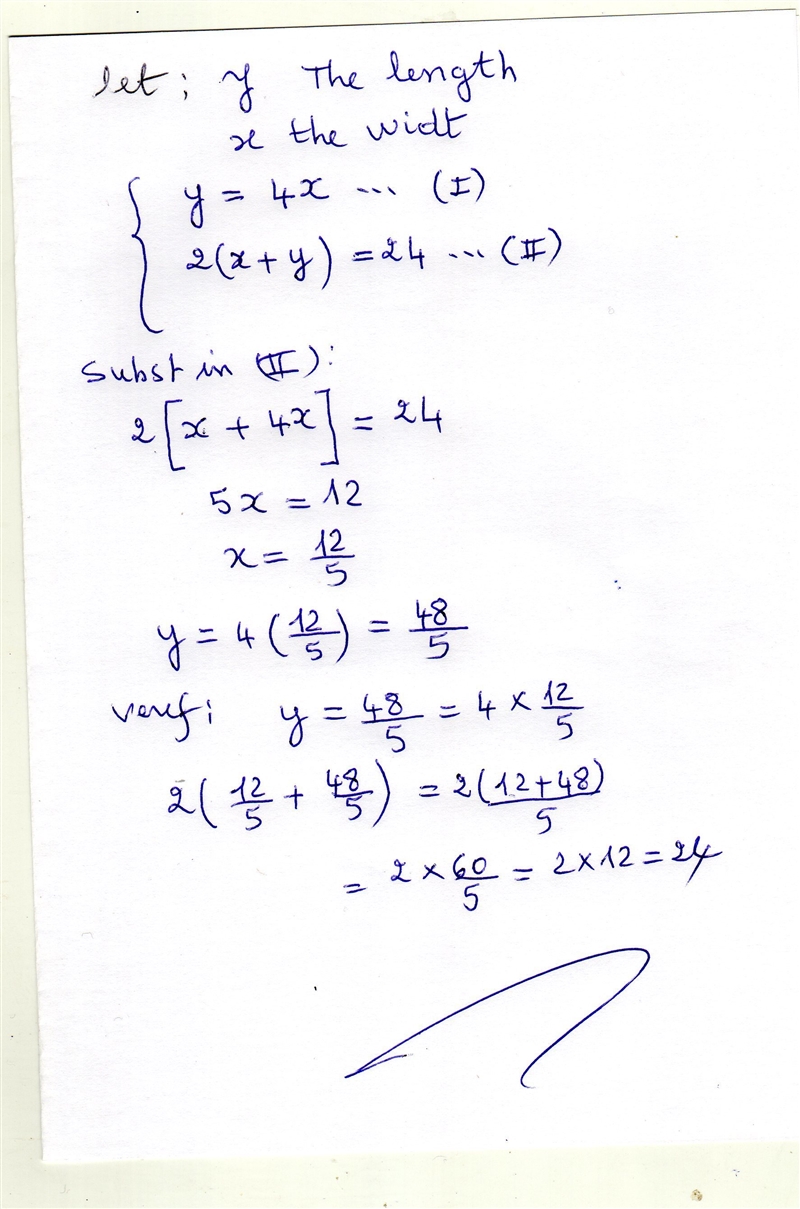 let; y The length
x the widt
y = 4x ... (I)
2(x + y) = 24 ... (II)
Subst in (II):
2[x + 4x] = 24
5x = 12
x = 12/5
y = 4(12/5) = 48/5
veref: y = 48/5 = 4 × 12/5
2(12/5 + 48/5) = 2(12+48)/5
= 2 × 60/5 = 2 × 12 = 24